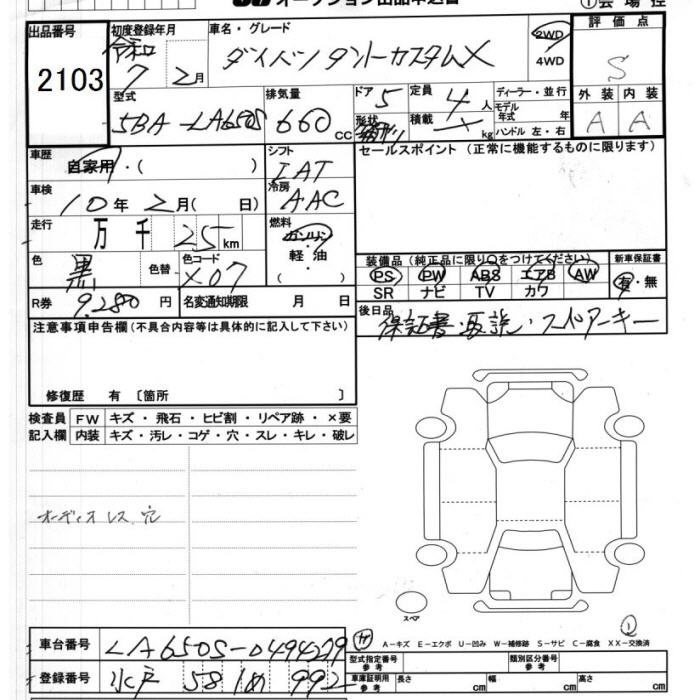 オークション出品申込書 ①会場控
出品番号 2103
初度登録年月 令和 7年 2月
車名・グレード ダイハツ タントカスタムX
2WD 4WD
評価点 S
外装 A 内装 A
型式 5BA-LA650S
排気量 660 cc
ドア形状 5
定員 4人
積載 kg
ディーラー・並行
モデル年式 年
ハンドル 左・右
車歴 自家用・( )
シフト IAT
冷房 AAC
セールスポイント (正常に機能するものに限ります)
車検 10年 2月( 日)
走行 万 千 25 km
燃料 ガソリン 軽油 ( )
色 黒 色替
色コード X07
装備品(純正品に限り○をつけてください)
PS PW ABS エアB AW
SR ナビ TV カワ
新車保証書 有・無
R券 9,280円
名変通知期限 月 日
後日品 保証書・取説・スペアーキー
注意事項申告欄(不具合内容等は具体的に記入して下さい)
修復歴 有 〔箇所 〕
検査員記入欄
FW キズ・飛石・ヒビ割・リペア跡・×要
内装 キズ・汚レ・コゲ・穴・スレ・キレ・破レ
オーディオレス 穴
スペア
A-キズ E-エクボ U-凹み W-補修跡 S-サビ C-腐食 XX-交換済
車台番号 LA650S-0494279
型式指定番号 参考
類別区分番号 参考
登録番号 水戸 581 め 992
車庫証明用 参考 長さ cm 幅 cm 高さ cm